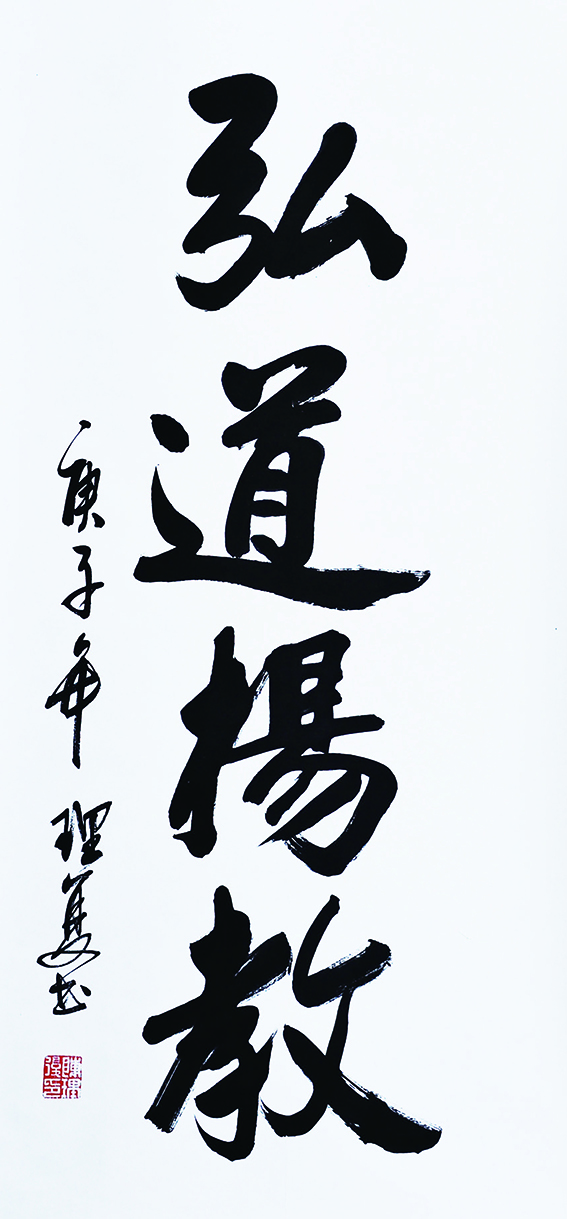 弘道揚教
庚子年 理复书